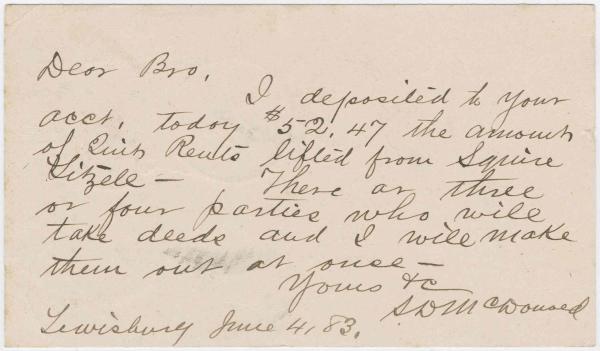 Dear Bro,
I deposited to your
acct, today $52.47 the amount
of Quit Rents lifted from Squire
Litzell —  There ar three
or four parties who will
take deeds and I will make
them out at once —
Yours &c
S D McDonald
Lewisburg June 4, 83.